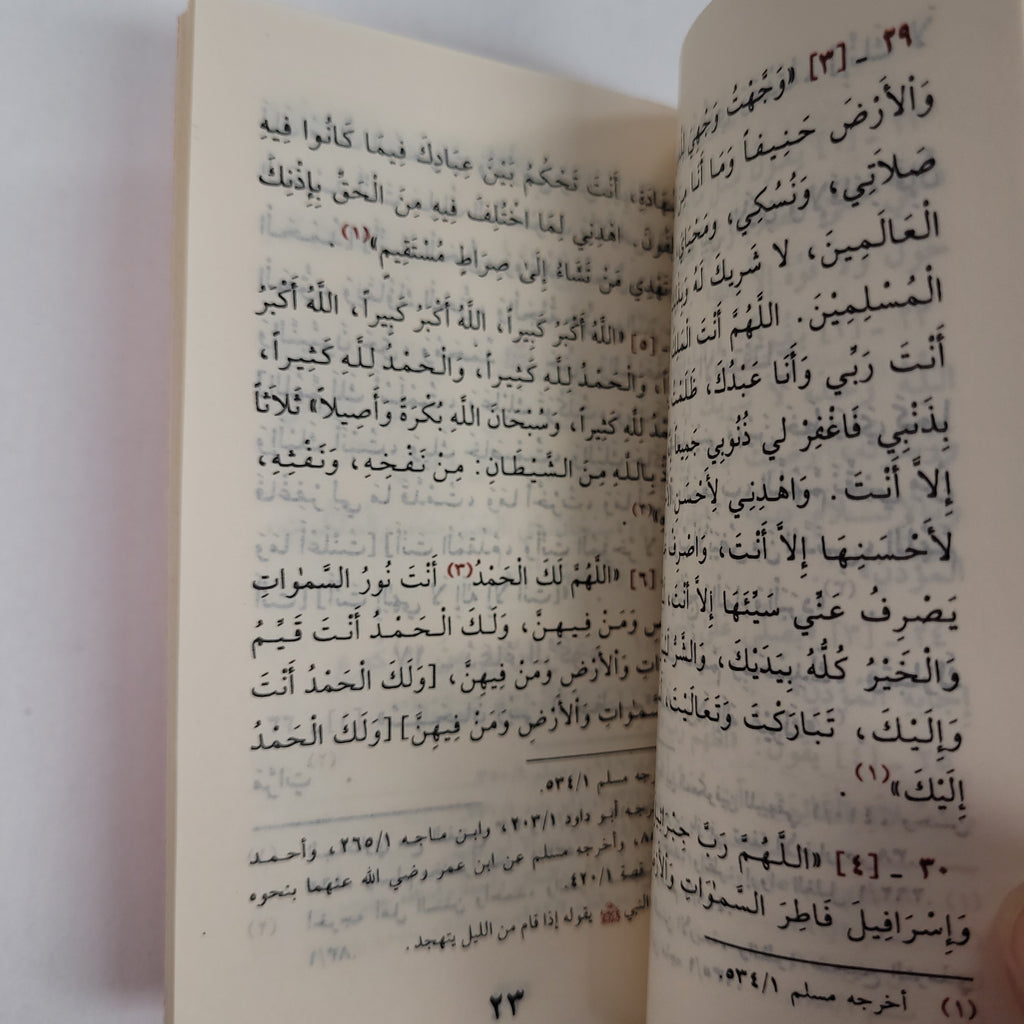 ٢٩ ـ [٣] «وَجَّهْتُ وَجْهِيَ
وَالْأَرْضَ حَنِيفاً وَمَا أَنَا
صَلَاتِي، وَنُسُكِي، وَمَحْيَايَ
الْعَالَمِينَ، لَا شَرِيكَ لَهُ
الْمُسْلِمِيْنَ. اللَّهُمَّ أَنْتَ
أَنْتَ رَبِّي وَأَنَا عَبْدُكَ،
بِذَنْبِي فَاغْفِرْ لي ذُنُوبِي جَمِيعاً
إِلاَّ أَنْتَ. وَاهْدِنِي لِأَحْسَنِ
لأَحْسَنِهَا إِلاَّ أَنْتَ،
يَصْرِفُ عَنِّي سَيِّئَهَا إِلاَّ أَنْتَ،
وَالْخَيْرُ كُلُّهُ بِيَدَيْكَ، وَالشَّرُّ
وَإِلَيْكَ، تَبَارَكْتَ وَتَعَالَيْتَ،
إِلَيْكَ»(١).
٣٠ ـ [٤] «اللَّهُمَّ رَبَّ
وَإِسْرَافِيلَ فَاطِرَ السَّمٰوَاتِ
(١) أخرجه مسلم ٥٣٤/١.
أَنْتَ تَحْكُمُ بَيْنَ عِبَادِكَ فِيمَا كَانُوا فِيهِ
اهْدِنِي لِمَا اخْتُلِفَ فِيهِ مِنَ الْحَقِّ بِإِذْنِكَ
تَهْدِي مَنْ تَشَاءُ إِلَىٰ صِرَاطٍ مُسْتَقِيمٍ»(١).
[٥] «اللَّهُ أَكْبَرُ كَبِيراً، اللَّهُ أَكْبَرُ كَبِيراً، اللَّهُ أَكْبَرُ
وَالْحَمْدُ لِلَّهِ كَثِيراً، وَالْحَمْدُ لِلَّهِ كَثِيراً،
لِلَّهِ كَثِيراً، وَسُبْحَانَ اللَّهِ بُكْرَةً وَأَصِيلاً» ثَلَاثاً
بِاللَّهِ مِنَ الشَّيْطَانِ: مِنْ نَفْخِهِ، وَنَفْثِهِ،
[٦] «اللَّهُمَّ لَكَ الْحَمْدُ(٣) أَنْتَ نُورُ السَّمٰوَاتِ
وَمَنْ فِيهِنَّ، وَلَكَ الْحَمْدُ أَنْتَ قَيِّمُ
وَالْأَرْضِ وَمَنْ فِيهِنَّ، [وَلَكَ الْحَمْدُ أَنْتَ
وَالْأَرْضِ وَمَنْ فِيهِنَّ] [وَلَكَ الْحَمْدُ
مسلم ٥٣٤/١.
أبو داود ٢٠٣/١، وابن ماجه ٢٦٥/١، وأحمد
وأخرجه مسلم عن ابن عمر رضي الله عنهما بنحوه
قصة ٤٢٠/١.
النبي ﷺ يقوله إذا قام من الليل يتهجد.
٢٣